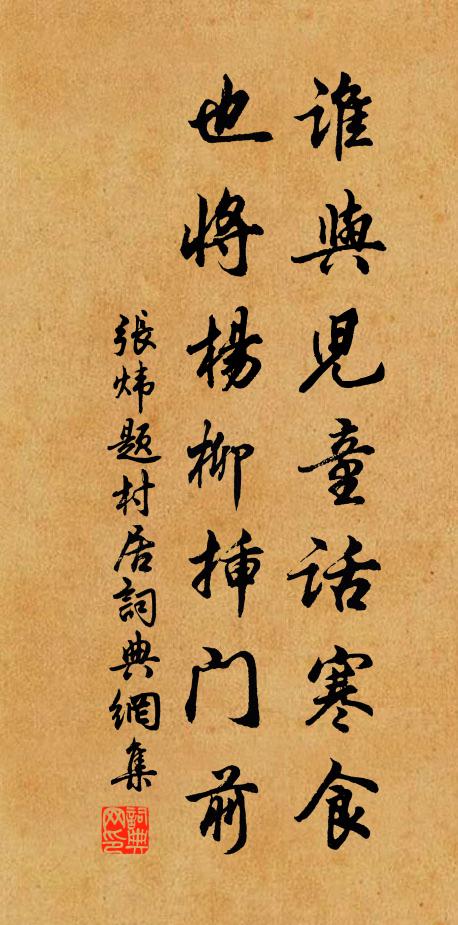 誰與兒童話寒食
也將楊柳揷门前
張炜题村居詞典網集
詞典网印